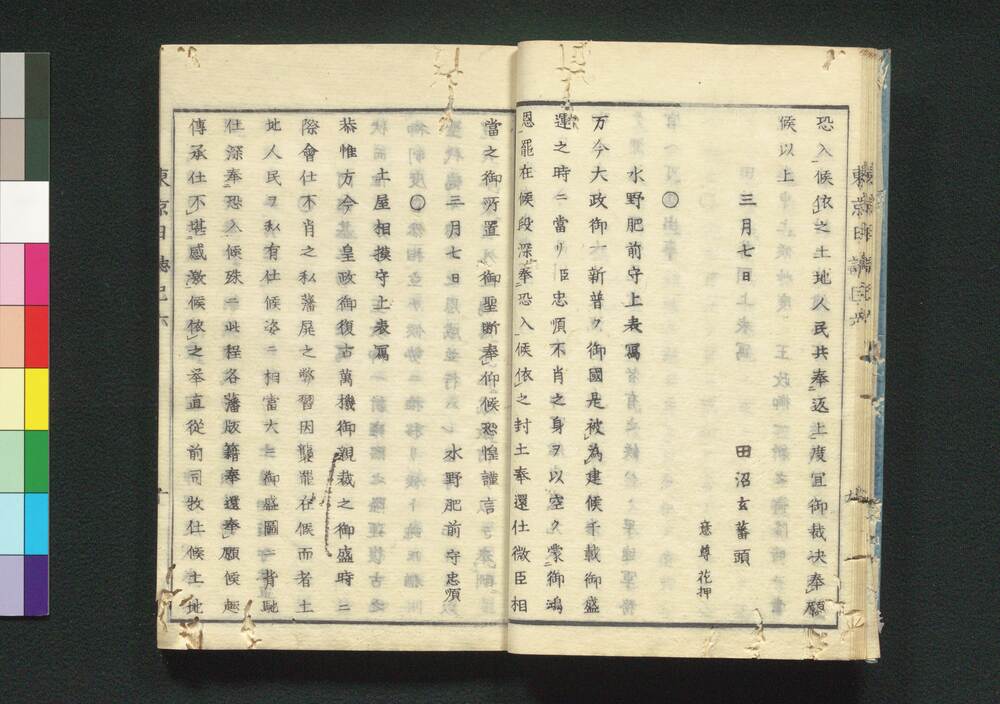 恐入候依之土地人民共奉返上度宜御裁决奉願
候以上
三月七日
田沼玄蕃頭
意尊花押
○
水野肥前守上表寫
万今大政御一新普ク御國是被為建候千載御盛
運之時ニ當リ臣忠順不肖之身ヲ以空ク蒙御鴻
恩罷在候段深奉恐入候依之封土奉還仕微臣相
當之御所置御聖断奉仰候恐惶謹言
三月七日
水野肥前守忠順
○
土屋相摸守上表寫
恭惟方今皇政御復古萬機御親裁之御盛時ニ
際會仕不肖之私藩屏之弊習因襲罷在候而者土
地人民ヲ私有仕候姿ニ相當大ニ御盛圖ニ背馳
仕深奉恐入候殊ニ此程各藩版籍奉還奉願候趣
傳承仕不堪感激候依之舉直從前司牧仕候土地